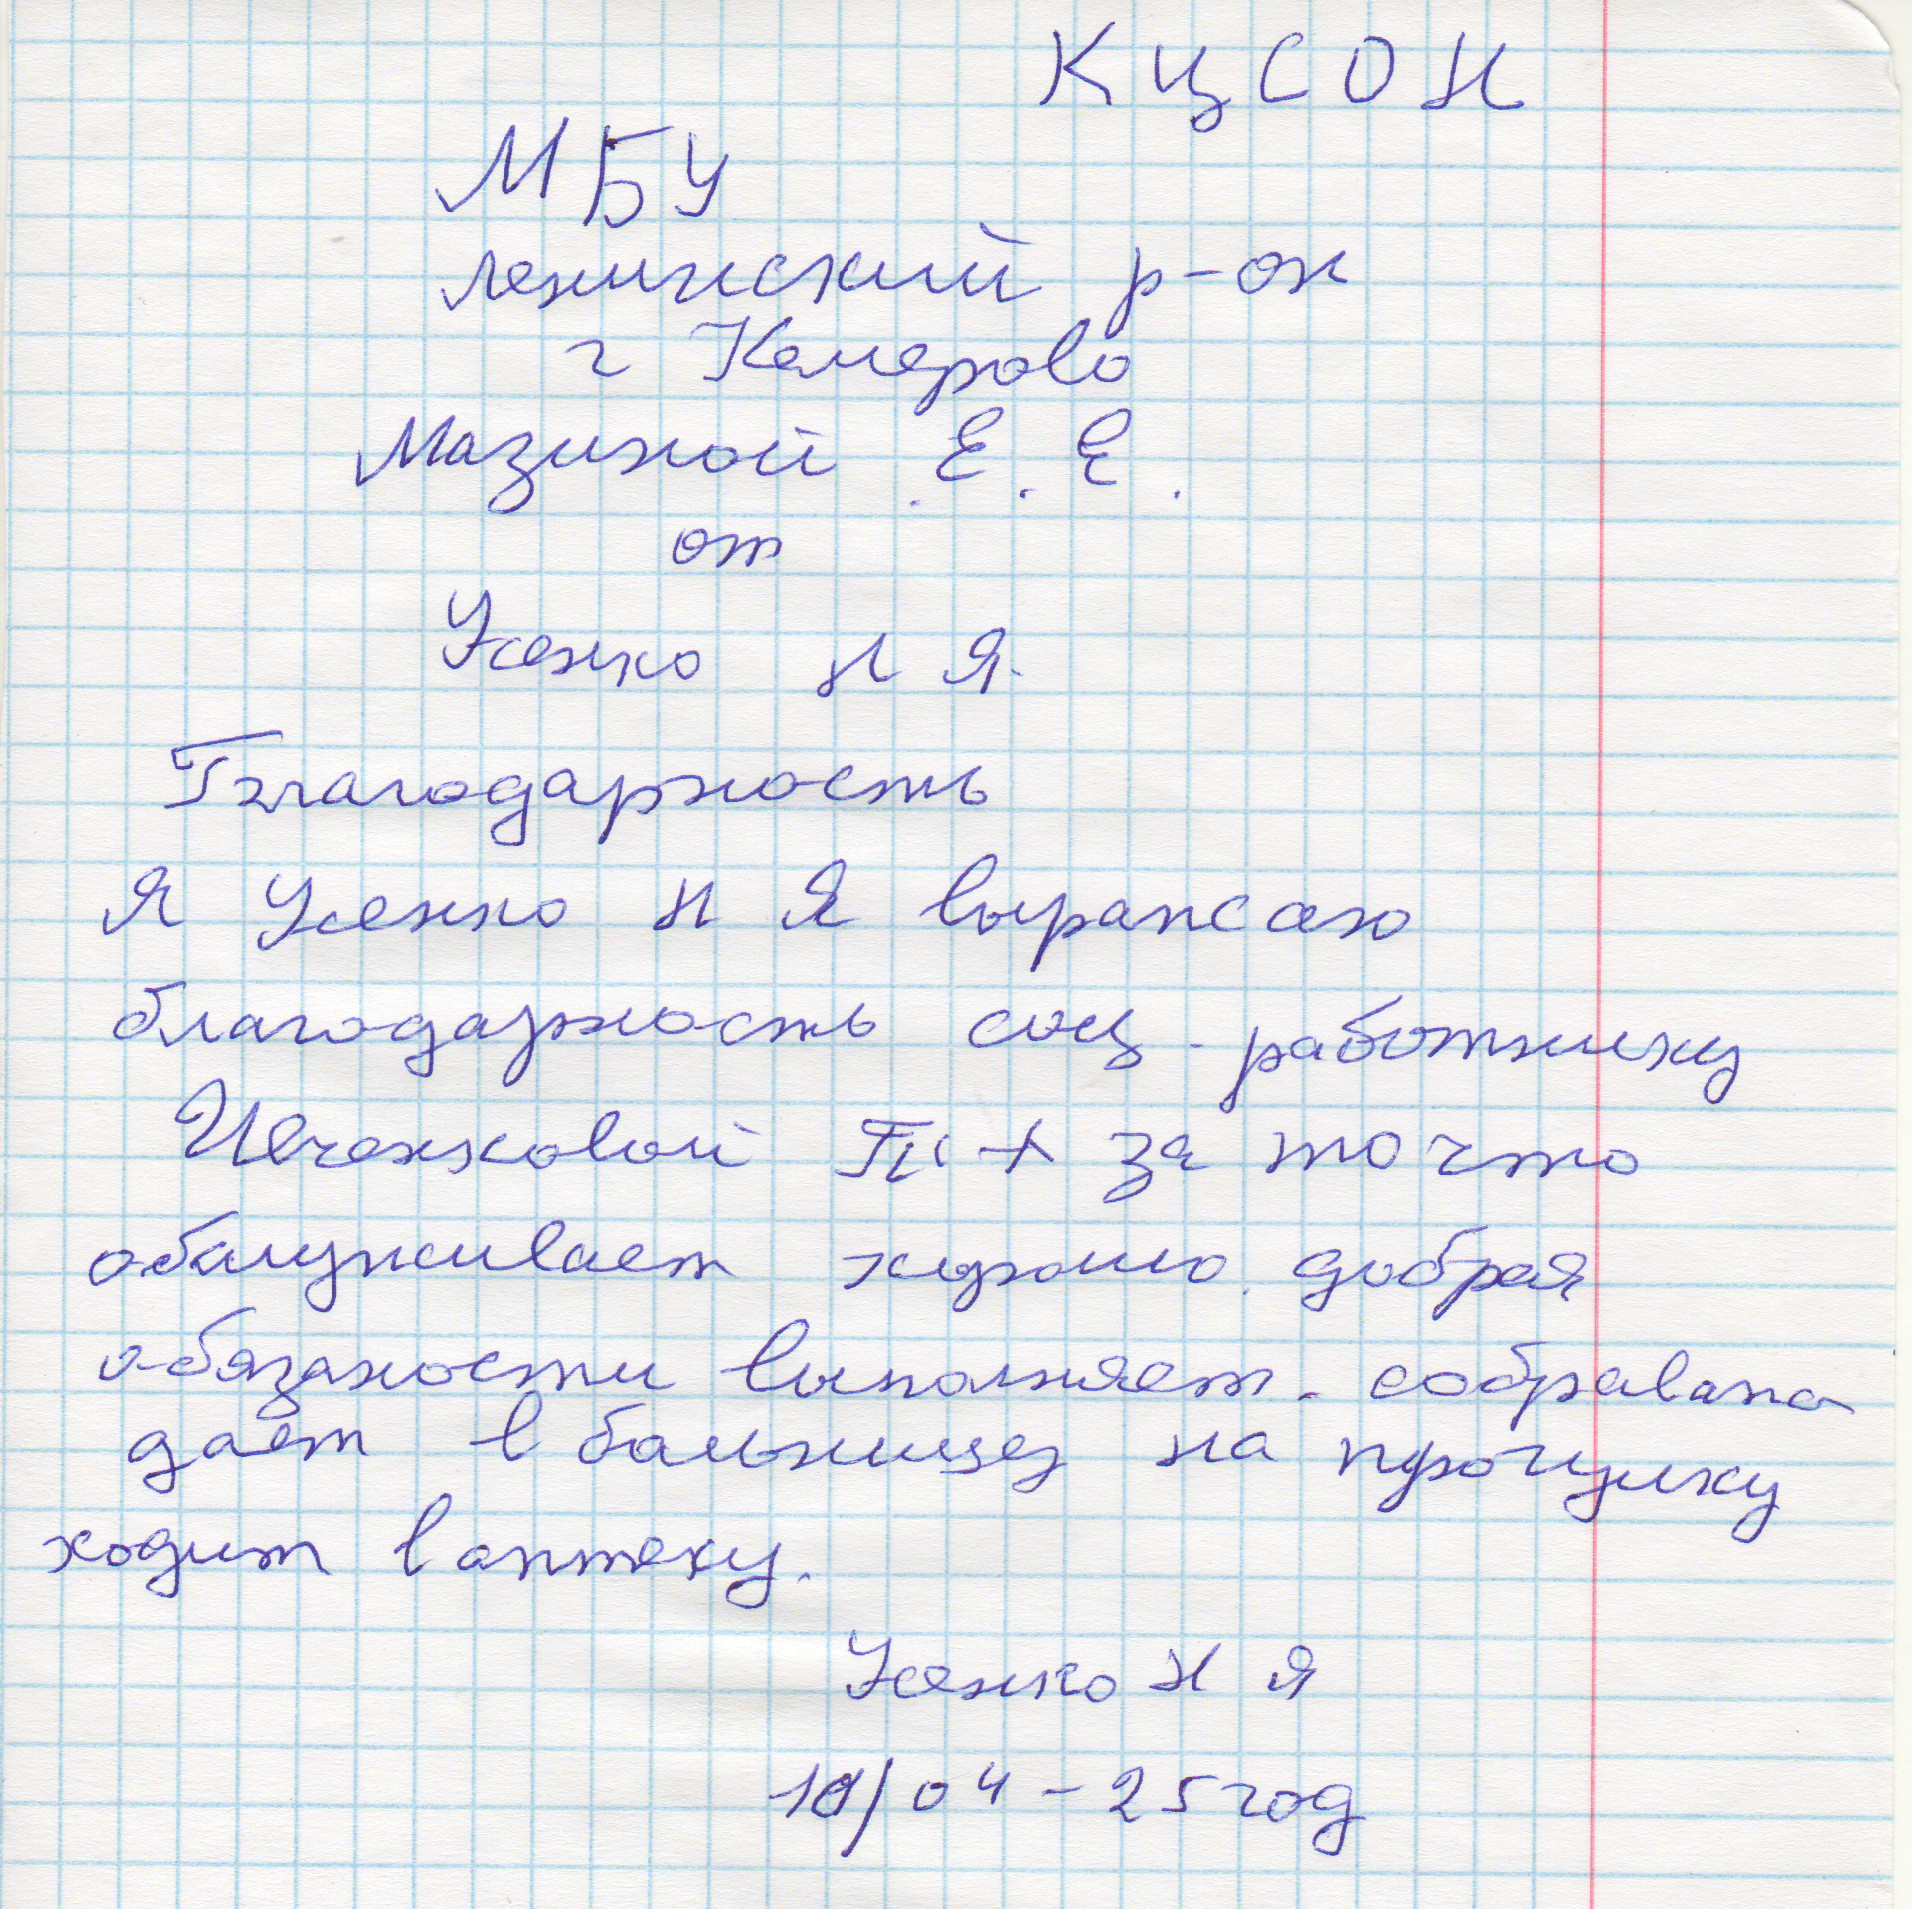 КЦСОН
МБУ
Ленинский р-он
г Кемерово
Мазиной Е. Е.
от
Усенко Н Я.
Благодарность
Я Усенко Н Я выражаю
благодарность соц. работнику
за то что
обслуживает хорошо. добрая
обязаности выполняет.
дает в больницу на
ходит в аптеку.
Усенко Н Я
/04-25год